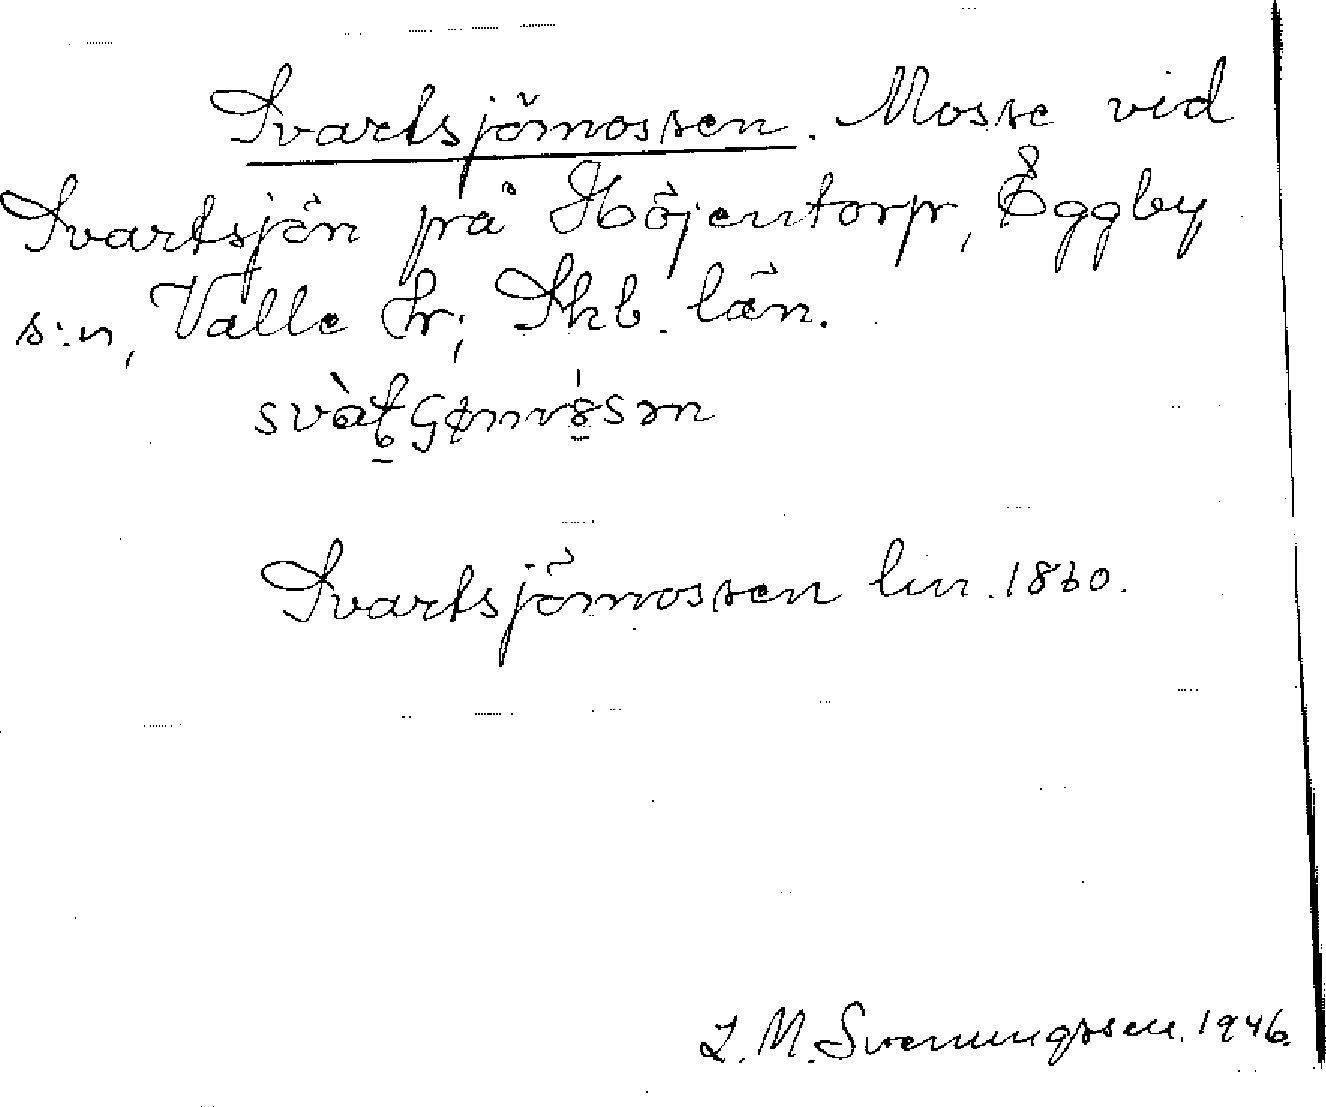 Svartsjömossen. Mosse vid
Svartsjön på Höjentorp, Eggby
s:n, Valle hr; Skb. län.
Svartsjömossen lm. 1860.
L. M. Svenungsson. 1946.